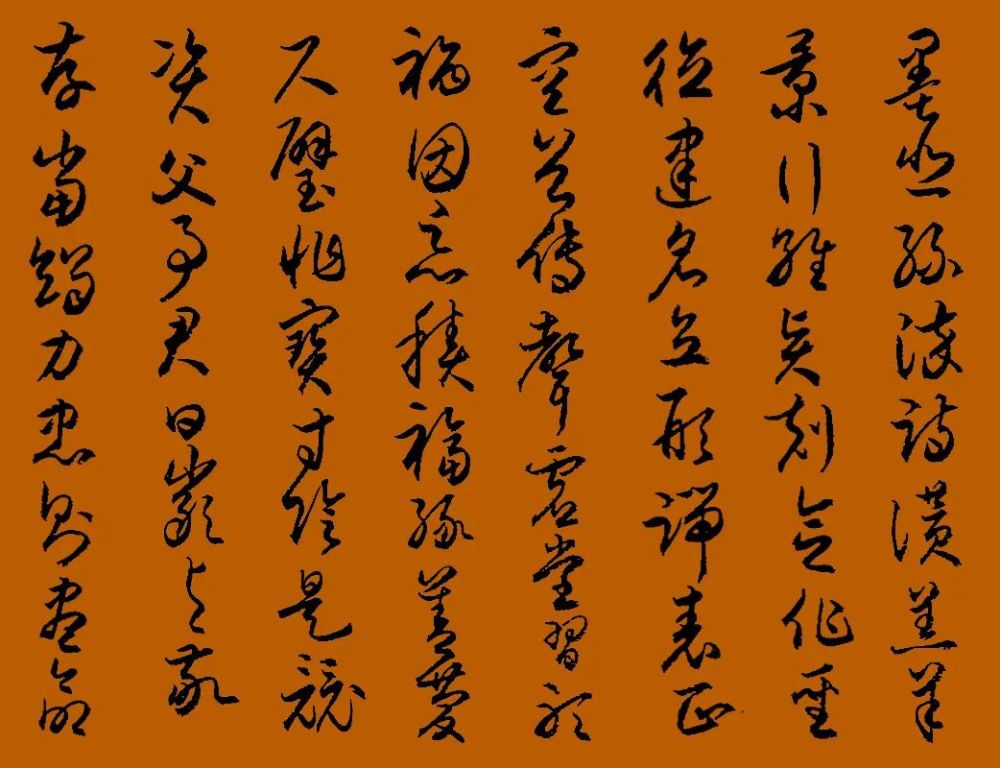 墨悲絲染詩讚羔羊
景行維賢剋念作聖
德建名立形端表正
空谷傳聲虛堂習聽
禍因惡積福緣善慶
尺璧非寶寸陰是競
資父事君曰嚴與敬
孝當竭力忠則盡命